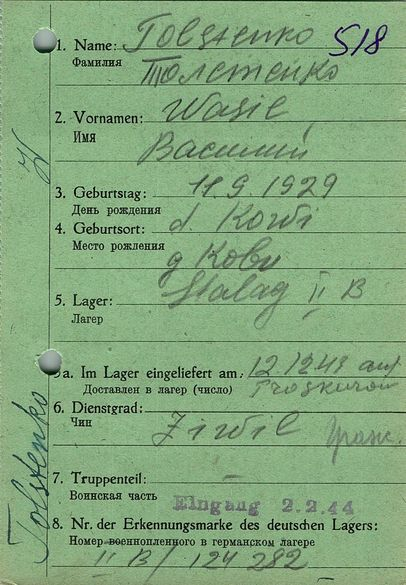 1. Name: Tolstenko 518
Фамилия Толстенко
2. Vornamen: Wasil
Имя Василий
3. Geburtstag: 11.9.1929
День рождения
4. Geburtsort: d. Kowi
Место рождения
д Кови
5. Lager: Stalag II B
Лагер
5a. Im Lager eingeliefert am: 12.12.43 aus
Доставлен в лагер (число) Proskurow
6. Dienstgrad: Ziwil
Чин Гражс.
7. Truppenteil: –
Воинская часть Eingang 2.2.44
8. Nr. der Erkennungsmarke des deutschen Lagers:
Номер военнопленного в германском лагере
II B / 124 282
Tolstenko